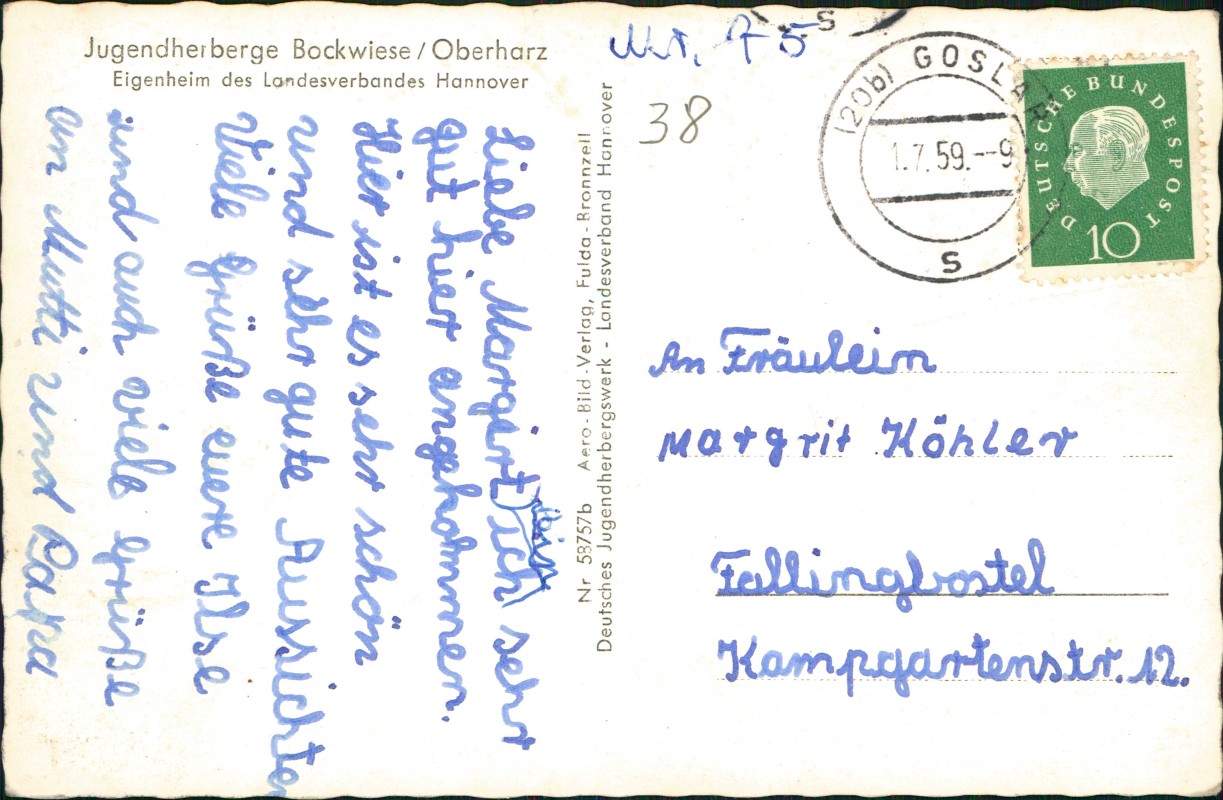 Jugendherberge Bockwiese/Oberharz
Eigenheim des Landesverbandes Hannover
Liebe Margärt ich bin sehr
gut hier angekommen.
Hier ist es sehr schön
und sehr gute Aussichten
Viele Grüße euere Ilse
und auch viele Grüße
an Mutti und Papa
Nr 58757b Aero-Bild-Verlag, Fulda-Bronnzell
Deutsches Jugendherbergswerk - Landesverband Hannover
38
(20b) GOSLAR
1.7.59.--9
s
DEUTSCHE BUNDESPOST
10
An Fräulein
Margrit Köhler
Fallingbostel
Kampgartenstr. 12.